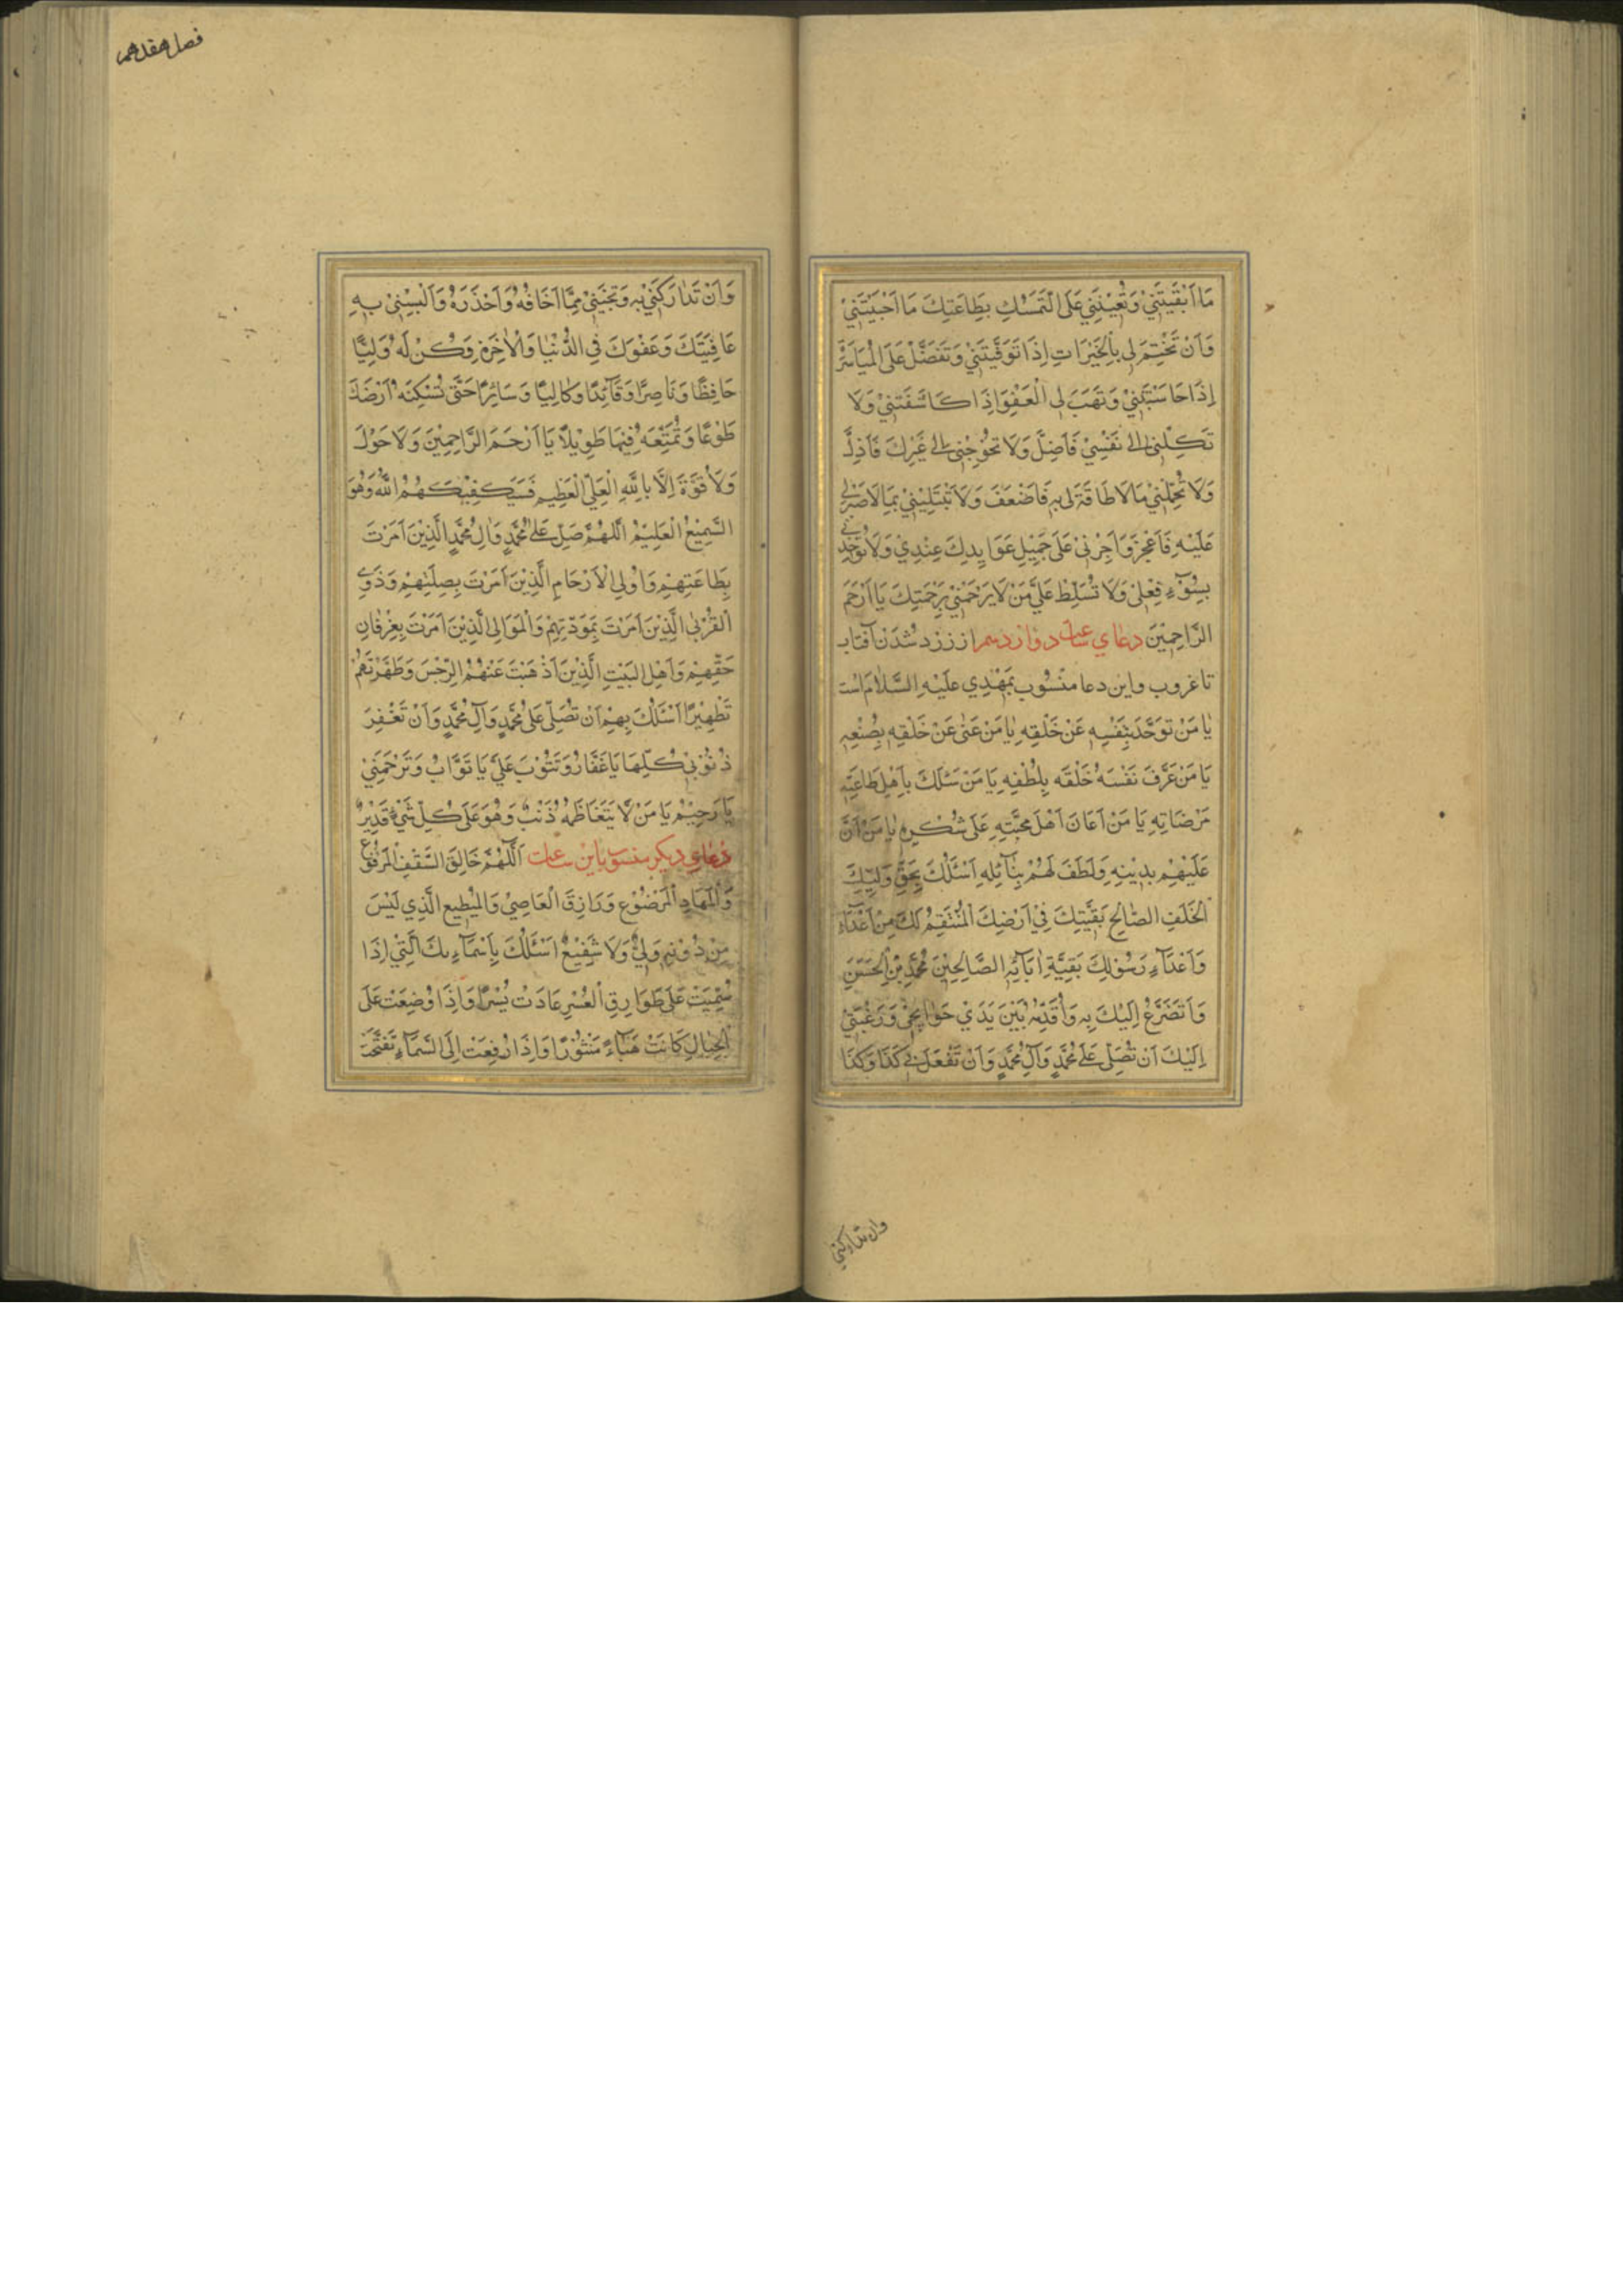 مَا اَبْقَيْتَنِيْ وَتُعِيْنَنِيْ عَلَى التَّمَسُّكِ بِطَاعَتِكَ مَا اَحْيَيْتَنِيْ
وَاَنْ تَخْتِمَ لِي بِالْخَيْرَاتِ اِذَا تَوَفَّيْتَنِيْ وَتَفَضَّلْ عَلَىَّ الْمَيَاسَرَةَ
اِذَا حَاسَبْتَنِيْ وَتَهَبَ لِي الْعَفْوَ اِذَا كَاشَفْتَنِيْ وَلَا
تَكِلْنِي اِلٰى نَفْسِيْ فَاَضِلَّ وَلَا تُحْوِجْنِي اِلٰى غَيْرِكَ فَاَذِلَّ
وَلَا تُحَمِّلْنِيْ مَالَا طَاقَةَ لِي بِهِ فَاَضْعَفَ وَلَا تَبْتَلِيْنِيْ بِمَا لَا صَبْرَ لِي
عَلَيْهِ فَاَعْجِزَ وَاَجِرْنِيْ عَلَى جَمِيْلِ عَوَايِدِكَ عِنْدِيْ وَلَا تُؤَاخِذْنِي
بِسُوْٓءِ فِعْلِي وَلَا تُسَلِّطْ عَلَيَّ مَنْ لَا يَرْحَمُنِيْ بِرَحْمَتِكَ يَا اَرْحَمَ
الرَّاحِمِيْنَ دعاي ساعت دوازدهم از زرد شدن آفتاب
تا غروب واين دعا منسوب بمهدي عَلَيْهِ السَّلَامُ است
يَا مَنْ تَوَحَّدَ بِنَفْسِهِ عَنْ خَلْقِهِ يَا مَنْ غَنٰى عَنْ خَلْقِهِ بِصُنْعِهِ
يَا مَنْ عَرَّفَ نَفْسَهُ خَلْقَهُ بِلُطْفِهِ يَا مَنْ سَلَكَ بِاَهْلِ طَاعَتِهِ
مَرْضَاتِهِ يَا مَنْ اَعَانَ اَهْلَ مَحَبَّتِهِ عَلَى شُكْرِهِ يَا مَنْ مَنَّ
عَلَيْهِمْ بِدِيْنِهِ وَلَطَفَ لَهُمْ بِنَآئِلِهِ اَسْئَلُكَ بِحَقِّ وَلِيِّكَ
الْخَلَفِ الصَّالِحِ بَقِيَّتِكَ فِيْ اَرْضِكَ الْمُنْتَقِمُ لَكَ مِنْ اَعْدَآئِكَ
وَاَعْدَآءِ رَسُوْلِكَ بَقِيَّةِ اٰبَآئِهِ الصَّالِحِيْنَ مُحَمَّدِ بْنِ الْحَسَنِ
وَاَتَضَرَّعُ اِلَيْكَ بِهِ وَاُقَدِّمُهُ بَيْنَ يَدَيْ حَوَايِجِيْ وَرَغْبَتِيْ
اِلَيْكَ اَنْ تُصَلِّيَ عَلٰى مُحَمَّدٍ وَآلِ مُحَمَّدٍ وَاَنْ تَفْعَلَ بِي كَذَا وَكَذَا
وان تداركني
فصل هفدهم
وَاَنْ تَدَارَكَنِيْ بِهِ وَتُنْجِيَنِيْ مِمَّا اَخَافُهُ وَاَحْذَرَهُ وَاَلْبِسْنِيْ بِهِ
عَافِيَتَكَ وَعَفْوَكَ فِي الدُّنْيَا وَالْاٰخِرَةِ وَكُنْ لَهُ وَلِيًّا
حَافِظًا وَنَاصِرًا وَقَآئِدًا وَكَالِيًا وَسَاتِرًا حَتّٰى تُسْكِنَهُ اَرْضَكَ
طَوْعًا وَتُمَتِّعَهُ فِيْهَا طَوِيْلًا يَا اَرْحَمَ الرَّاحِمِيْنَ وَلَا حَوْلَ
وَلَا قُوَّةَ اِلَّا بِاللّٰهِ الْعَلِيِّ الْعَظِيْمِ فَسَيَكْفِيْكَهُمُ اللّٰهُ وَهُوَ
السَّمِيْعُ الْعَلِيْمُ اَللّٰهُمَّ صَلِّ عَلٰى مُحَمَّدٍ وَاٰلِ مُحَمَّدٍ الَّذِيْنَ اَمَرْتَ
بِطَاعَتِهِمْ وَاُولِي الْاَرْحَامِ الَّذِيْنَ اَمَرْتَ بِصِلَتِهِمْ وَذَوِي
الْقُرْبٰى الَّذِيْنَ اَمَرْتَ بِمَوَدَّتِهِمْ وَالْمَوَالِي الَّذِيْنَ اَمَرْتَ بِعِرْفَانِ
حَقِّهِمْ وَاَهْلِ الْبَيْتِ الَّذِيْنَ اَذْهَبْتَ عَنْهُمُ الرِّجْسَ وَطَهَّرْتَهُمْ
تَطْهِيْرًا اَسْئَلُكَ بِهِمْ اَنْ تُصَلِّيَ عَلٰى مُحَمَّدٍ وَآلِ مُحَمَّدٍ وَاَنْ تَغْفِرَ
ذُنُوْبِيْ كُلَّهَا يَا غَفَّارُ وَتَتُوْبَ عَلَيَّ يَا تَوَّابُ وَتَرْحَمَنِيْ
يَا رَحِيْمُ يَا مَنْ لَا يَتَعَاظَمُهُ ذَنْبٌ وَهُوَ عَلٰى كُلِّ شَيْءٍ قَدِيْرٌ
دعاي ديكر منسوب باين ساعت اَللّٰهُمَّ خَالِقَ السَّقْفِ الْمَرْفُوْعِ
وَالْمِهَادِ الْمَوْضُوْعِ وَرَازِقَ الْعَاصِيْ وَالْمُطِيْعِ الَّذِي لَيْسَ
مِنْ دُوْنِهِ وَلِيٌّ وَلَا شَفِيْعٌ اَسْئَلُكَ بِاَسْمَآءِكَ الَّتِيْ اِذَا
سُمِّيَتْ عَلٰى طَوَارِقِ الْعُسْرِ عَادَتْ يُسْرًا وَاِذَا وُضِعَتْ عَلَى
الْجِبَالِ كَانَتْ هَبَآءً مَنْثُوْرًا وَاِذَا رُفِعَتْ اِلَى السَّمَآءِ تَفَتَّحَتْ